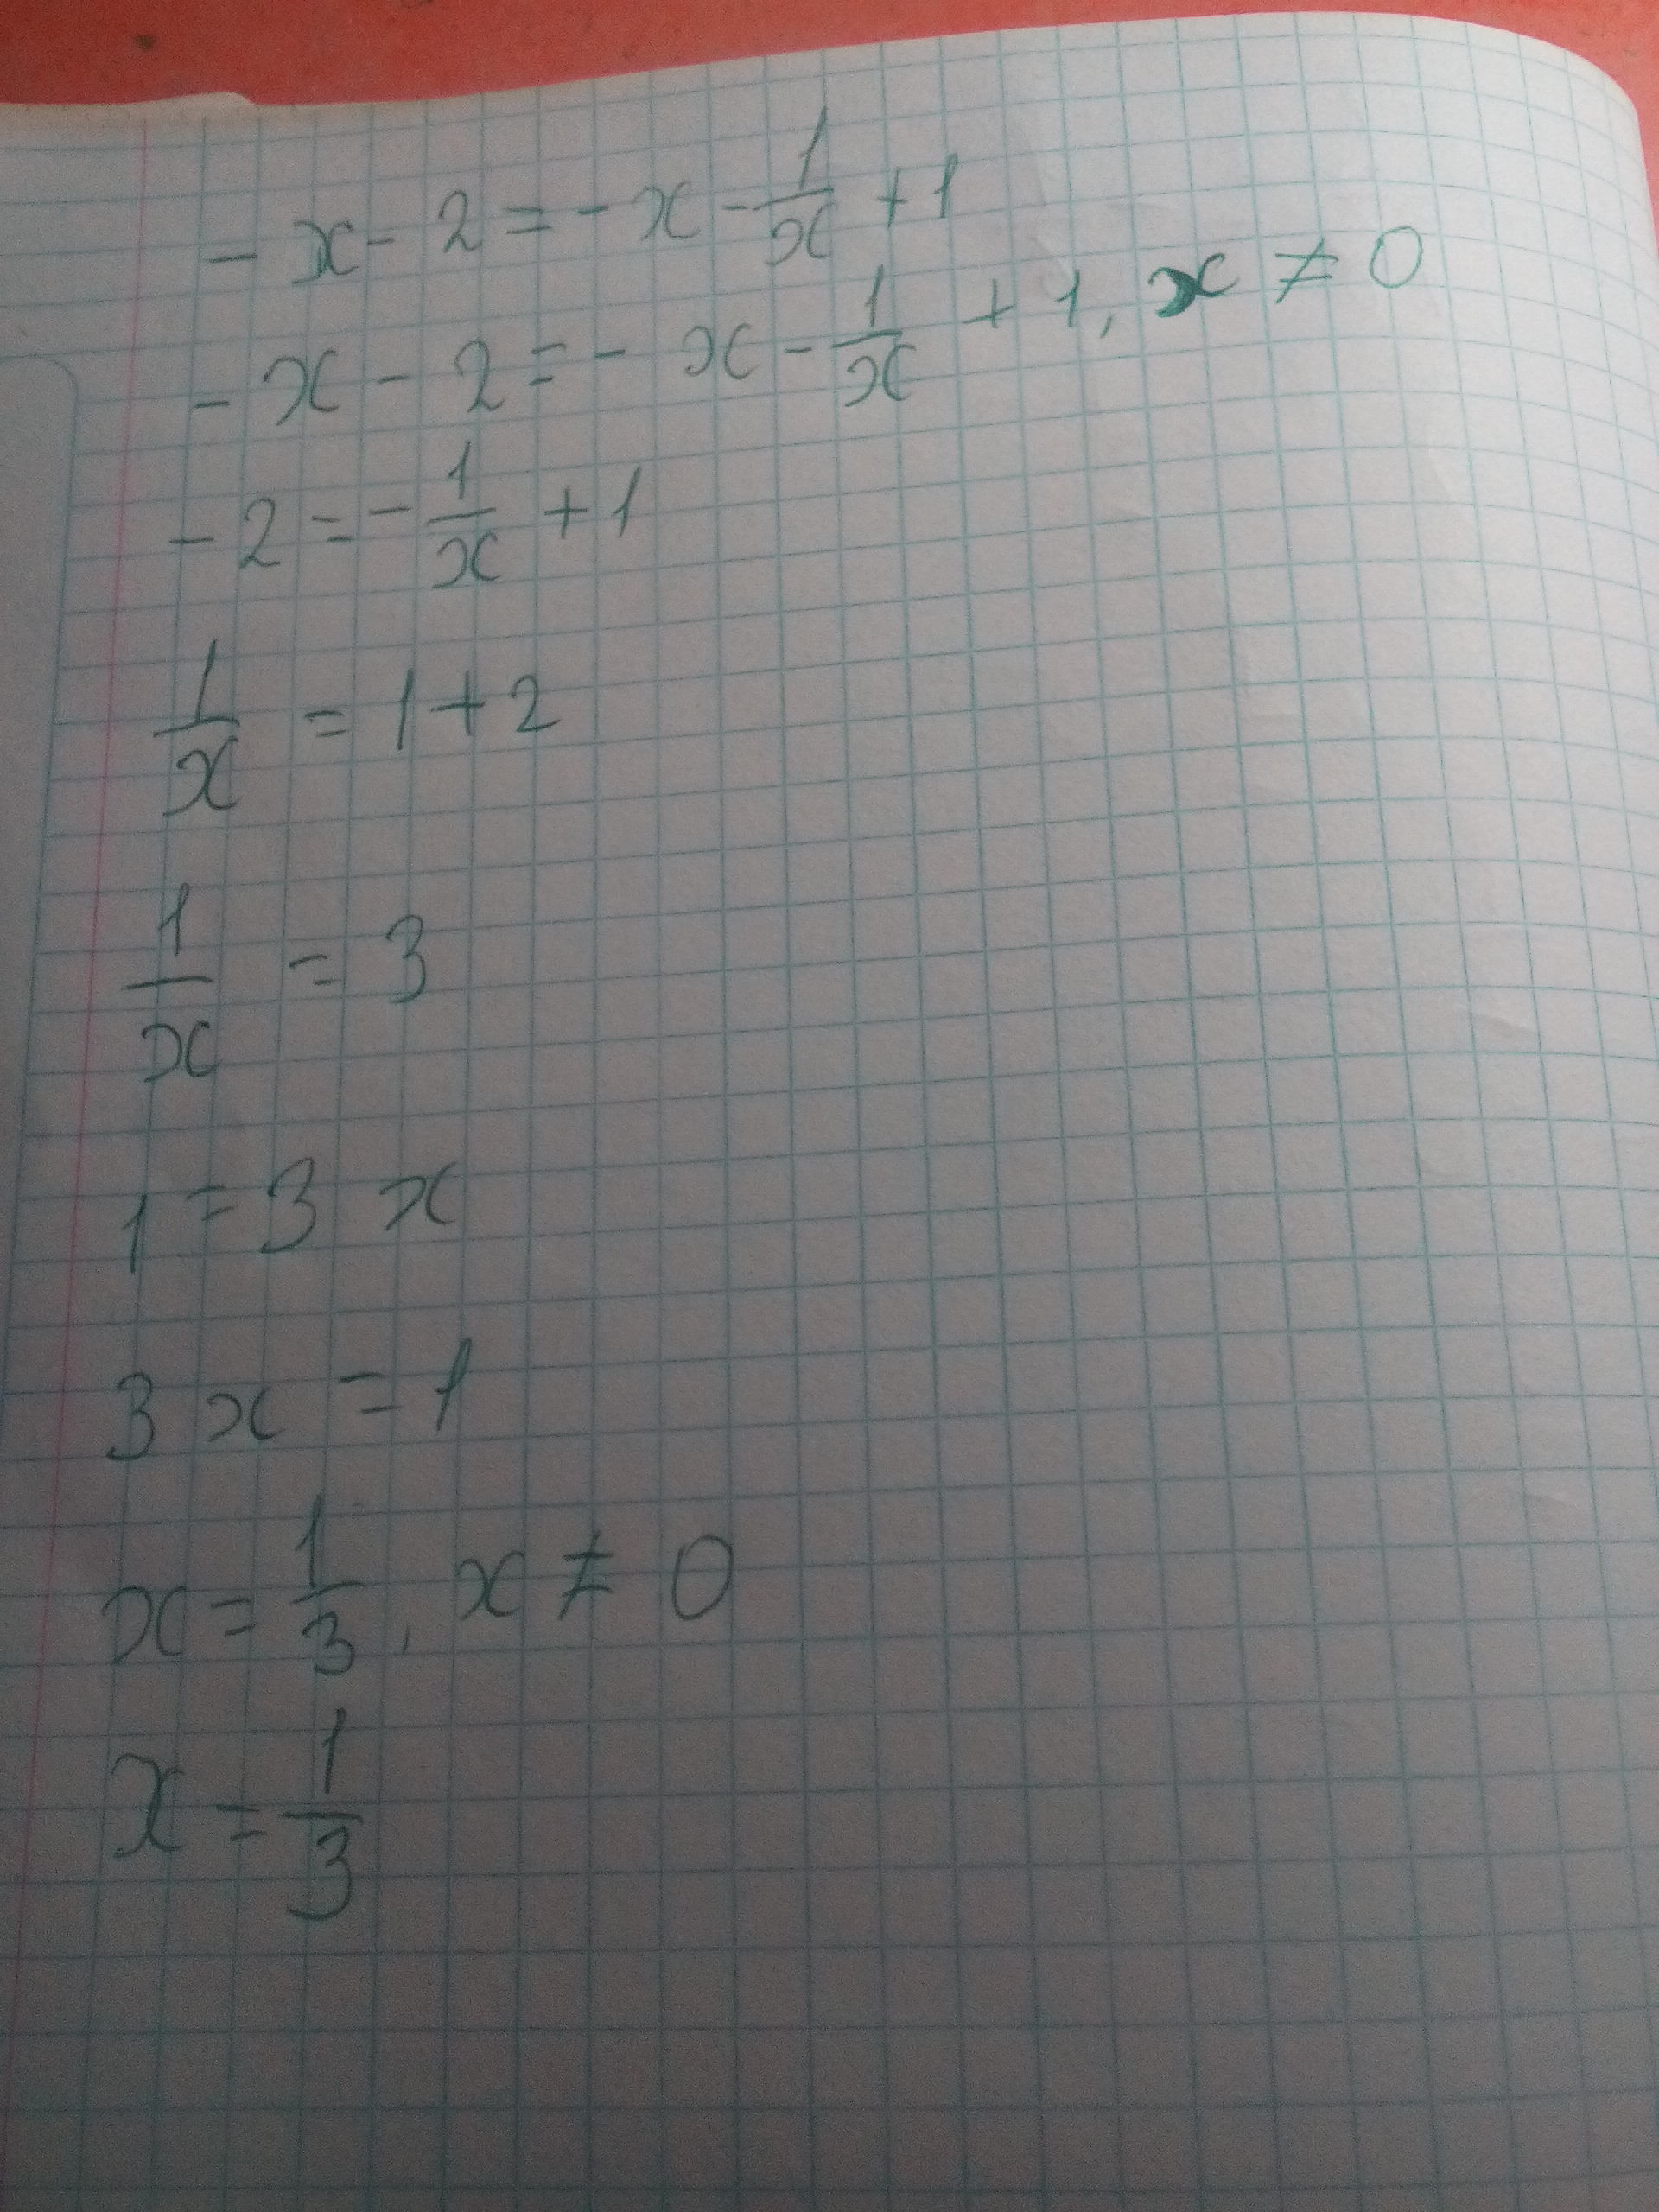 - x - 2 = - x - 1/x + 1
- x - 2 = - x - 1/x + 1, x ≠ 0
- 2 = - 1/x + 1
1/x = 1 + 2
1/x = 3
1 = 3 x
3 x = 1
x = 1/3, x ≠ 0
x = 1/3